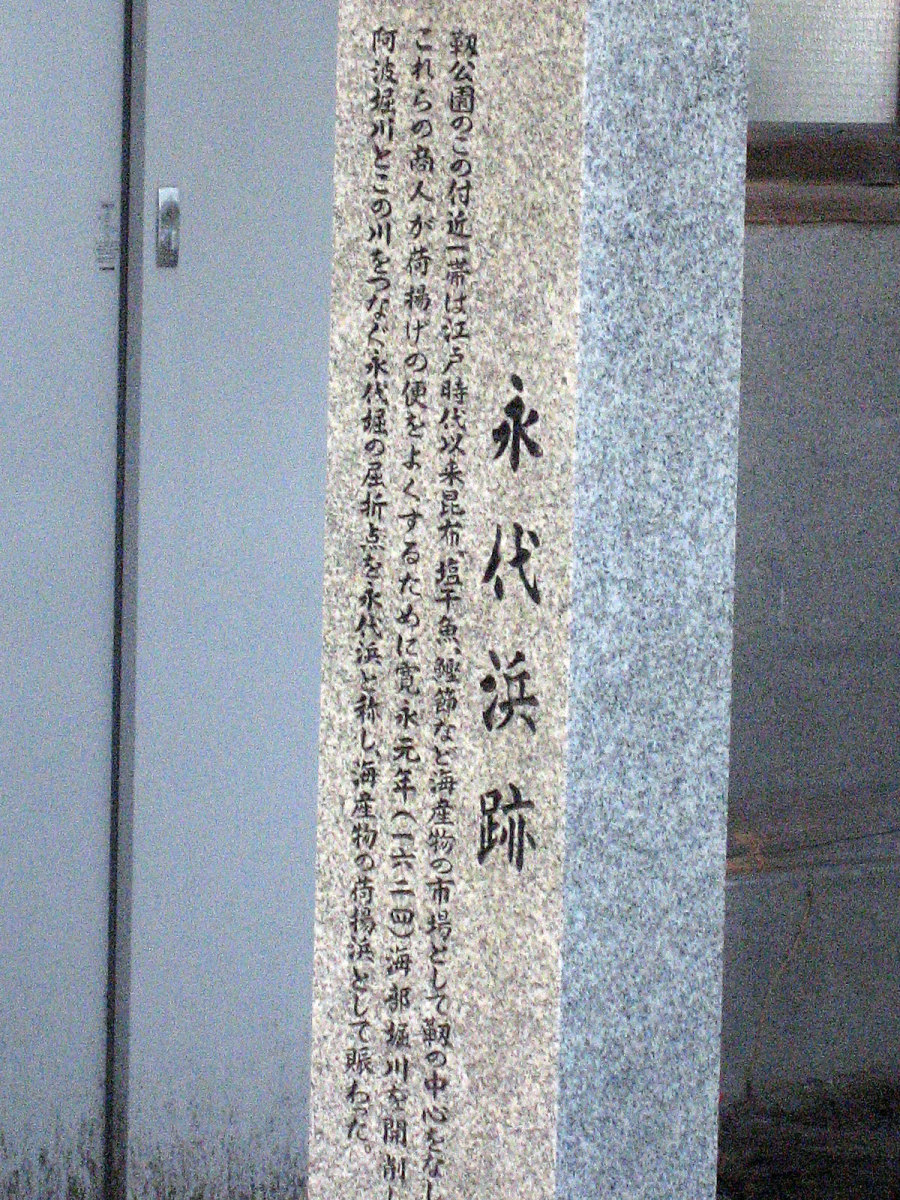 永代浜跡
靱公園のこの付近一帯は江戸時代以来昆布、塩干魚、鰹節など海産物の市場として靱の中心をなし
これらの商人が荷揚げの便をよくするために寛永元年(一六二四)海部堀川を開削し
阿波堀川とこの川をつなぐ永代堀の屈折点を永代浜と称し、海産物の荷揚浜として賑わった。